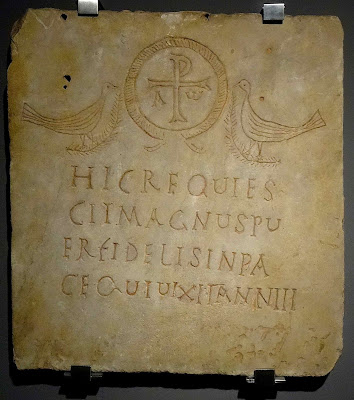 Α ω
HICREQUIES
CITMAGNUSPU
ERFIDELISINPA
CEQUIUIXITANNIII